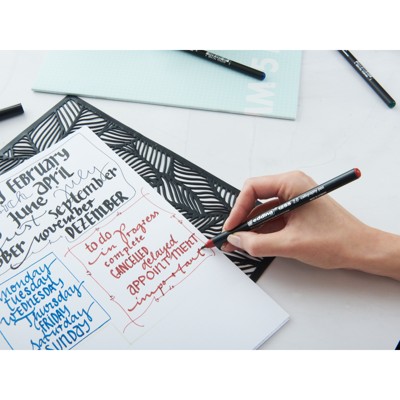 FEBRUARY
April
June July
September
november
DEZEMBER
to do
in progress
complete
CANCELLED
delayed
APPOINTMENT
important
monday
tuesday
WEDNESDAY
Thursday
FRIDAY
saturday
SUNDAY
edding 1255